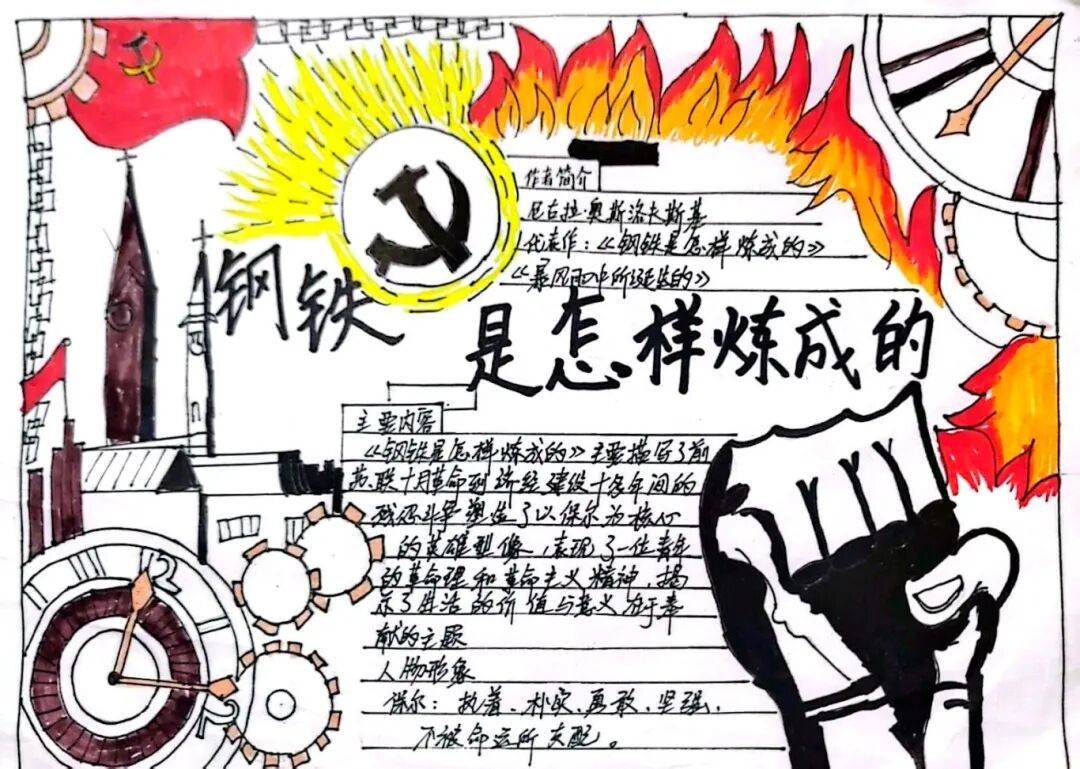 钢铁
是怎样炼成的
作者简介
尼古拉·奥斯洛夫斯基
代表作:《钢铁是怎样炼成的》
《暴风雨中所诞生的》
主要内容
《钢铁是怎样炼成的》主要描写了前
苏联十月革命到济经建设十多年间的
残酷斗争塑造了以保尔为核心
的英雄型像,表现了一位青年
的革命理和革命主义精神,揭
示了生活的价值与意义在于奉
献的主题
人物形象
保尔:执着、朴实、勇敢、坚强、
不被命运所支配。
12
3